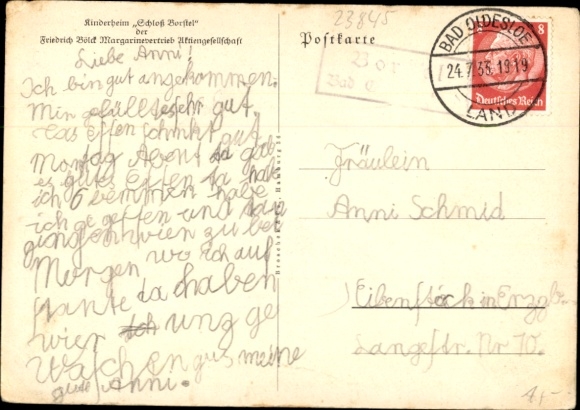 Kinderheim „Schloß Borstel"
der
Friedrich Bölck Margarinevertrieb Aktiengesellschaft
Liebe Anni!
Ich bin gut angekommen.
Mir gefällt es sehr gut,
Das Essen schmekt gut,
Montag Abent da gab
es gutes Essen da habe
ich 6 bemmen habe
ich gegessen und dan
gingen wir zu be
Morgen wo ich auf
stante da haben
wier ung ge
waschen gus meine
gute Anni.
Postkarte
23845
Bor
Bad
BAD OLDESLOE
24.7.36.18-19
LAND
8
Deutsches Reich
Fräulein
Anni Schmid
Eibenstock in Erzgb.
Langestr. Nr 70.
4,-